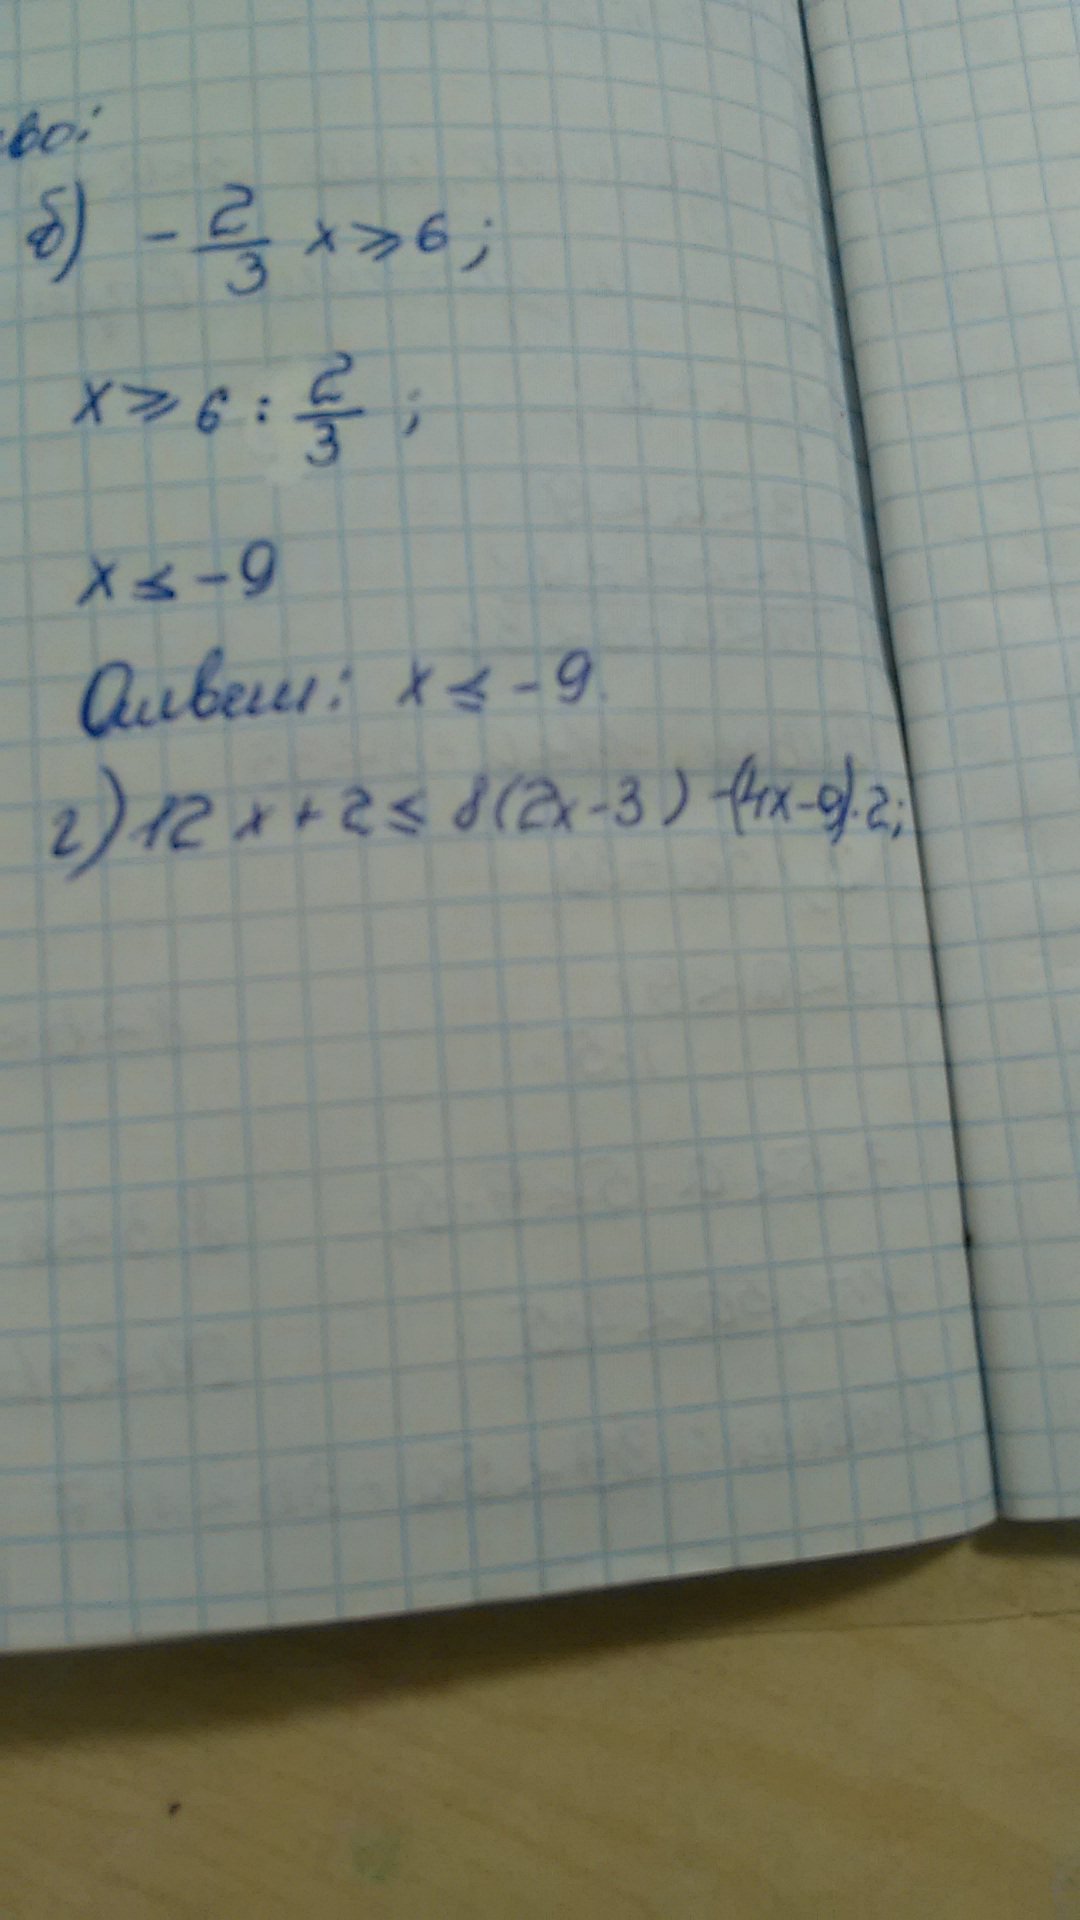 во:
б) - 2/3 x ⩾ 6 ;
x ⩾ 6 : 2/3 ;
x ≤ - 9
Ответ: x ≤ - 9.
г) 12 x + 2 ≤ 8(2x - 3) - (4x - 9) · 2;